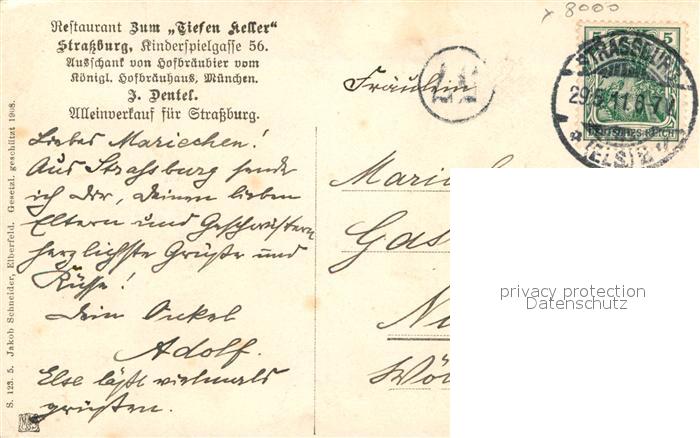 Restaurant Zum „Tiefen Keller“
Straßburg, Kinderspielgasse 56.
Ausschank von Hofbräubier vom
Königl. Hofbräuhaus, München.
J. Dentel.
Alleinverkauf für Straßburg.
Liebes Mariechen!
Aus Strassburg sende
ich Dir, Deinen lieben
Eltern und Geschwistern
herzlichste Grüße und
Küsse!
Dein Onkel
Adolf.
Else läßt vielmals
grüßen.
S. 123. 5. Jakob Schneider, Elberfeld. Gesetzl. geschützt 1908.
8000
5 5
DEUTSCHES REICH
STRASSBURG
29.5.11.6-7
*(ELS)2*
Fräulein
Marie
Gas
Ni
privacy protection
Demo Version